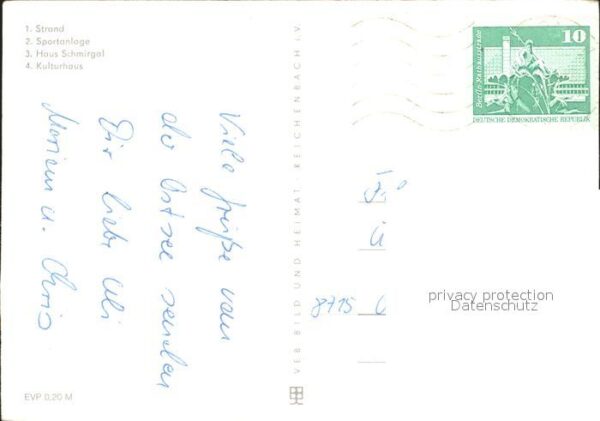 1. Strand
2. Sportanlage
3. Haus Schmirgal
4. Kulturhaus
Viele Grüße von
der Ostsee senden
Dir liebe Uli
Marion u. Chris
EVP 0,20 M
VEB BILD UND HEIMAT · REICHENBACH I.V.
10
Berlin Rathausstraße
DEUTSCHE DEMOKRATISCHE REPUBLIK
8715
privacy protection
Datenschutz